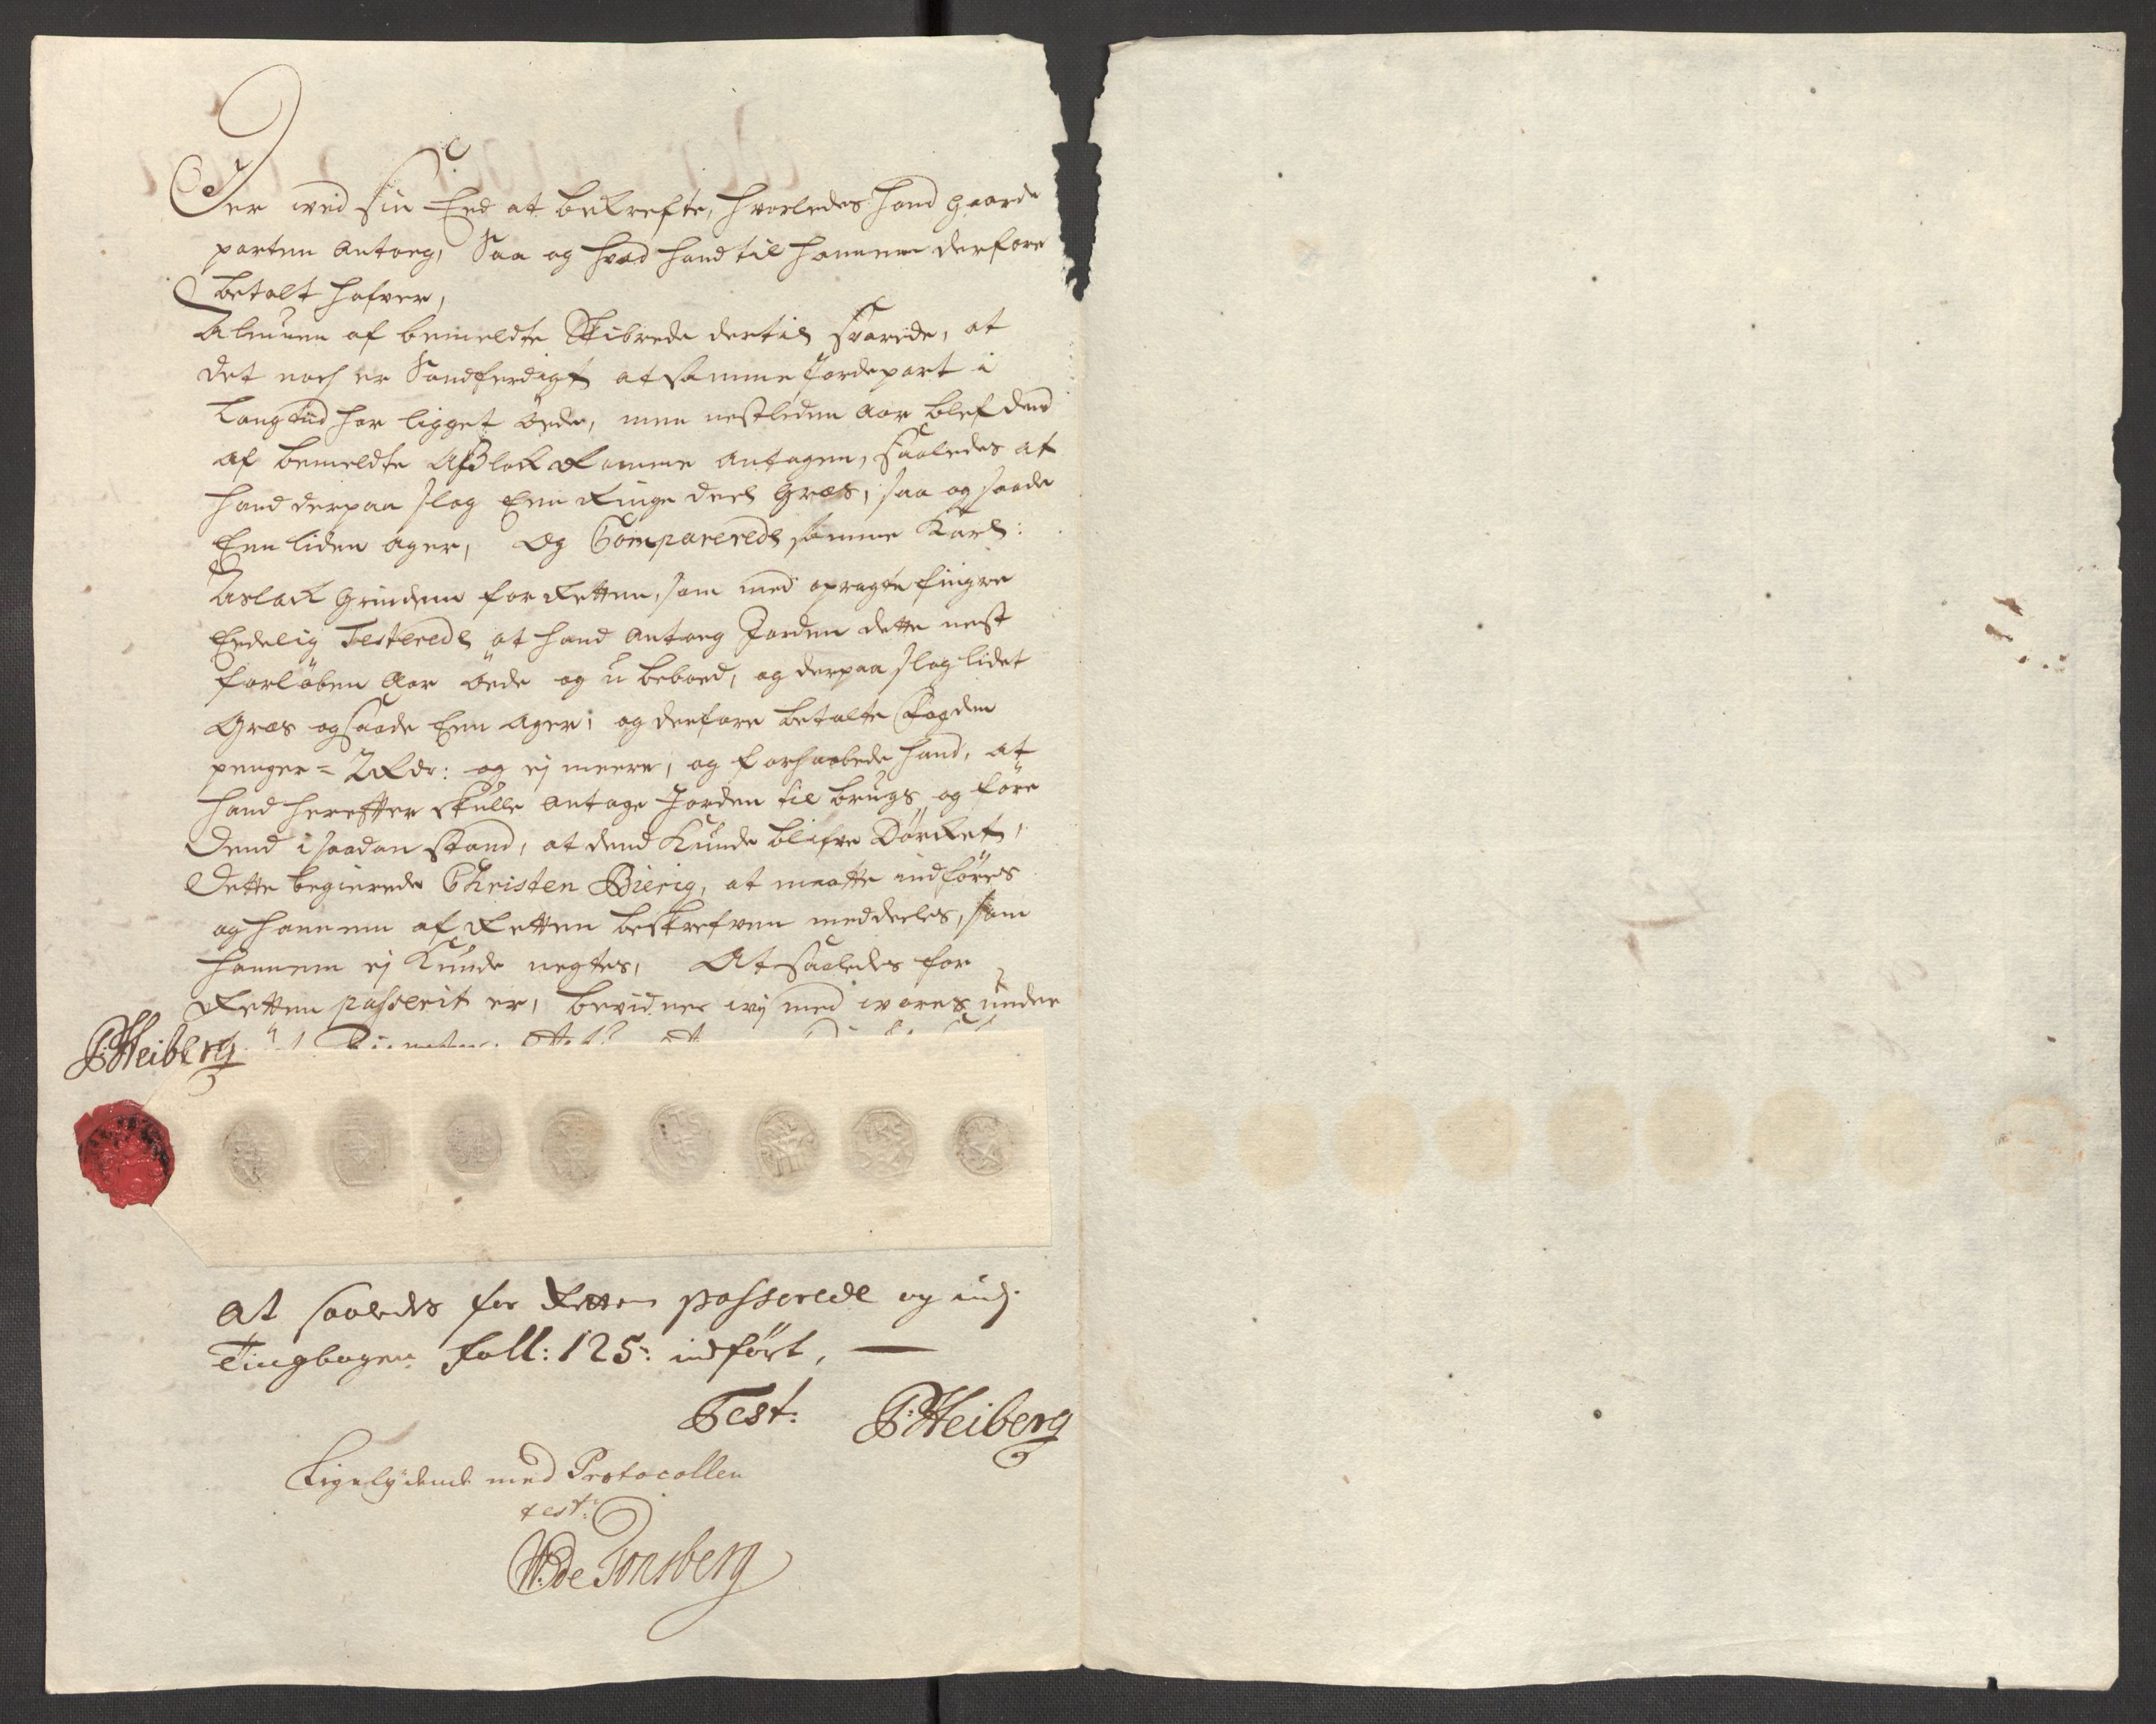 Der wed sin Eed at bekrefte, hvorledes hand gaarde
parten antoeg, Saa og hvad hand til hannem derfore
betalt hafver,
Almuen af bemeldte Skibrede dertil svarede, at
det noch er Sandferdigt at samme Jordepart i
lang tiid har ligget øede, men nestleden aar blef dend
af bemeldte Aßlack Romme antagen, saaledes at
hand derpaa slog Een Ringe deel græs, saa og saade
Een liden ager, Og Comparerede samme Karl:
Aslack Grinden for Retten, som med opragte fingre
Eedelig Testerede at hand antoeg Jorden dette nest
forløben Aar øede og u beboed, og derpaa slog lidet
Græs og saade Een ager, og derfore betalte Fogden
penger = 2 Rdr: og ej meere, og forhaabede hand, at
hand herefter skulle antage Jorden til brugs og føre
dend i saadan stand, at dend kunde blifve Dørcket,
Dette begierede Christen Bierig, at maatte indføres
og hannem af Retten beskrefven meddeeles, som
hannem ej kunde negtes, At saaledes for
Retten passerit er, bevidner wij med wores under
P: Heiberg
At saaledes for Retten passerede og ind
Tingbogen foll: 125: indført,
Test: P: Heiberg
Ligelydende med Protocollen
test:
W: de Tonsberg